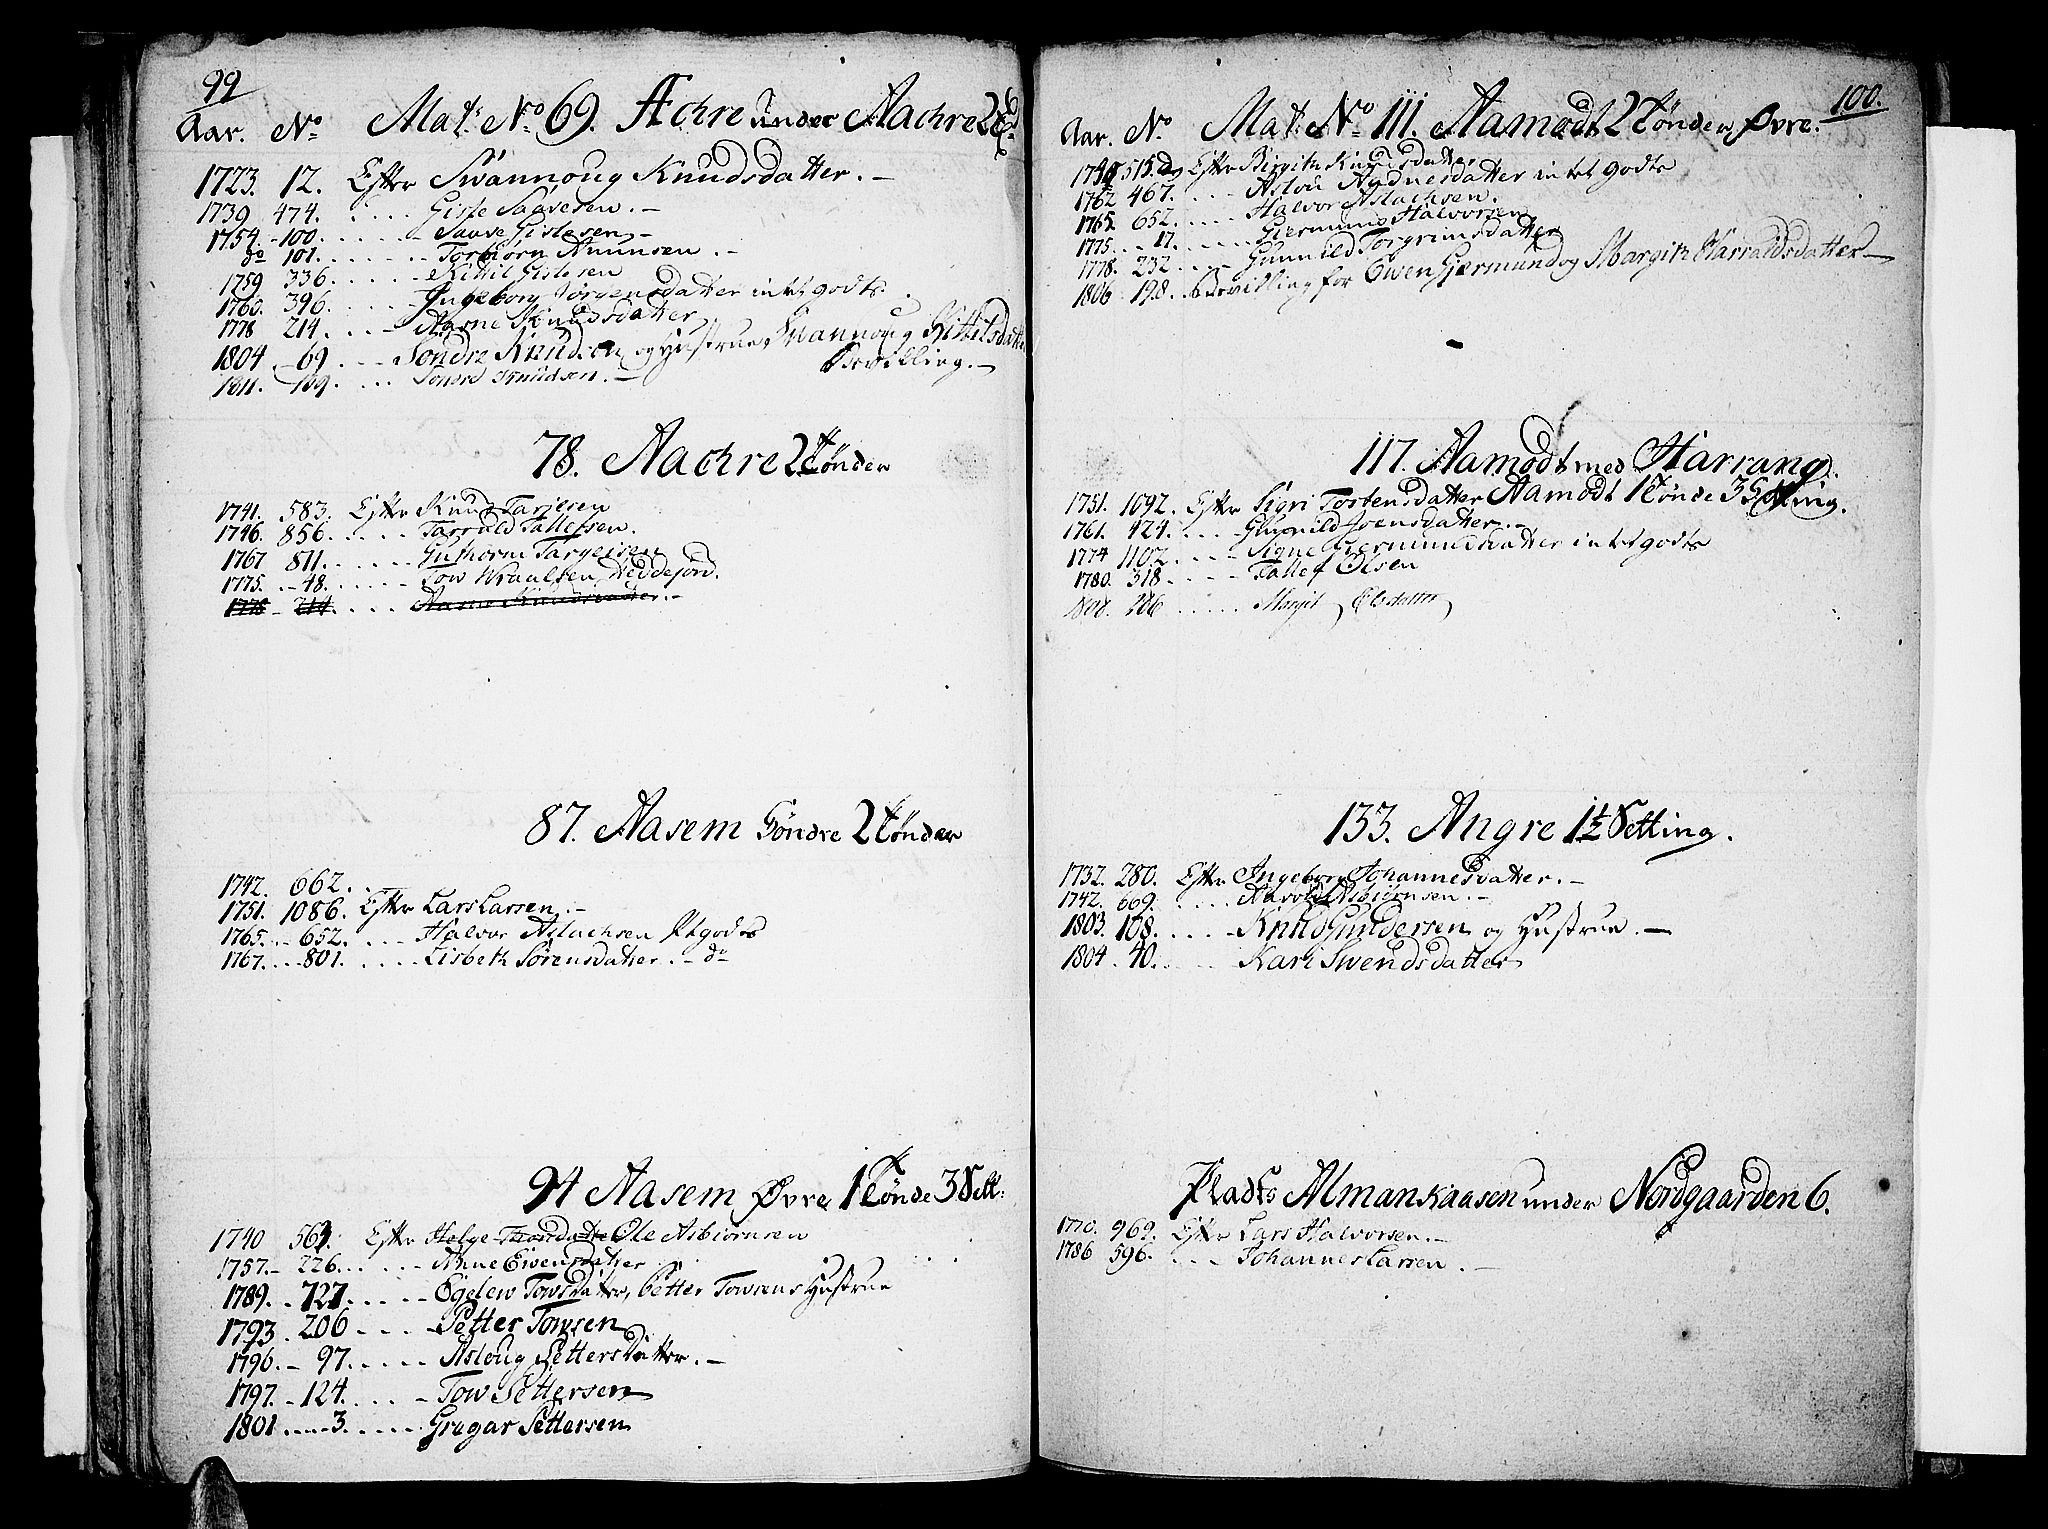 99
Aar. No Mat: No 69. Achre under Aachre 2
1723. 12. Efter Swannoug Knudsdatter. -
1739 474. . . . . Gisle Saavesen. -
1754. - 100. . . . . . Saave Gislesen -
do 101. . . . . . Torbiørn Amunsen. -
1759 336. . . . . Kittil Gislesen
1760. 396. . . . . Ingeborg Jørgensdatter intet godts.
1778 214. . . . Aasne Knudsdatter
1804 - 69. . . . Søndre Knudsen og Hustrue Swannoug Kittelsdatter
Bevilling. -
1811. - 139. . . . Søndre Knudsen. -
78. Aachre 2 Tønder
1741. 583. Efter Knud Tarjesen
1746. 856. . . . . Tarrald Tallefsen.
1767 811. . . . . . Guthorm Targeisen
1775. - 48. . . . . . Tow Wraalsen, Heddejord.
1778 - 214. . . . . Aasne Knudsdatter. -
87. Aasem Søndre 2 Tønder
1742. 662. . .
1751. 1086. Efter Lars Larsen. -
1765. . - 652. . . . Halvor Aslachsen Utgodts
1767. . . . 801. . . . . . Lisbeth Sørensdatter. - do
94 Aasem Øvre 1 Tønde 3 Sett:
1740 563. Efter Helge Ole Asbiørnsen
1757. - 226. . . . . . Anne Ewensdatter
1789. . 727. . . . . . Egelew Towsdatter, Petter Towsens Hustrue
1793 . 206 . . . . Petter Towsen
1796. - 97. . . . . . Asloug Pettersdatter. -
1797. - 124. . . . . Tow Pettersen
1801 . . . . . 3. . . . . . Gregar Pettersen
100.
Aar. No Mat: No 111. Aamodt 2 Tønder Øvre.
515. Efter Birgith Knudsdatter
1762 467. . . . Aslou Aydnesdatter intet godts
1765. 652. . . . . Halvor Aslachsen.
1775. . . 17. . . . . . Giermund Halvorsen
1778. 232. . . . Gunnild Torgrimsdatter
1806 198. Bevilling for Ewen Gjermund og Margith Harraldsdatter -
117. Aamodt med Harrang.
1751. 1092. Efter Sigri Tostensdatter Aamodt 1 Tønde 3 Setting.
1761. 424. . . . Gunnild Joensdatter. -
1774 1102. . . . Signe Giermundsdatter intet godts
1780. 318 . . . . Tallef Olsen
1808. 206 . . . . . Margit Olsdatter
133. Angre 1½ Setting.
1732. 280. Efter Ingeborg Johannesdatter. -
1742. 669. . . . . Aarold Asbiørnsen. -
1803. 108. . . . . Knud Gundersen og Hustrue. -
1804 . 40. . . . . Kari Swendsdatter
Pladts Almankaasen under Nordgaarden 6.
1770. 969. Efter Lars Halvorsen. -
1786 596. . . . Johannes Larsen. -